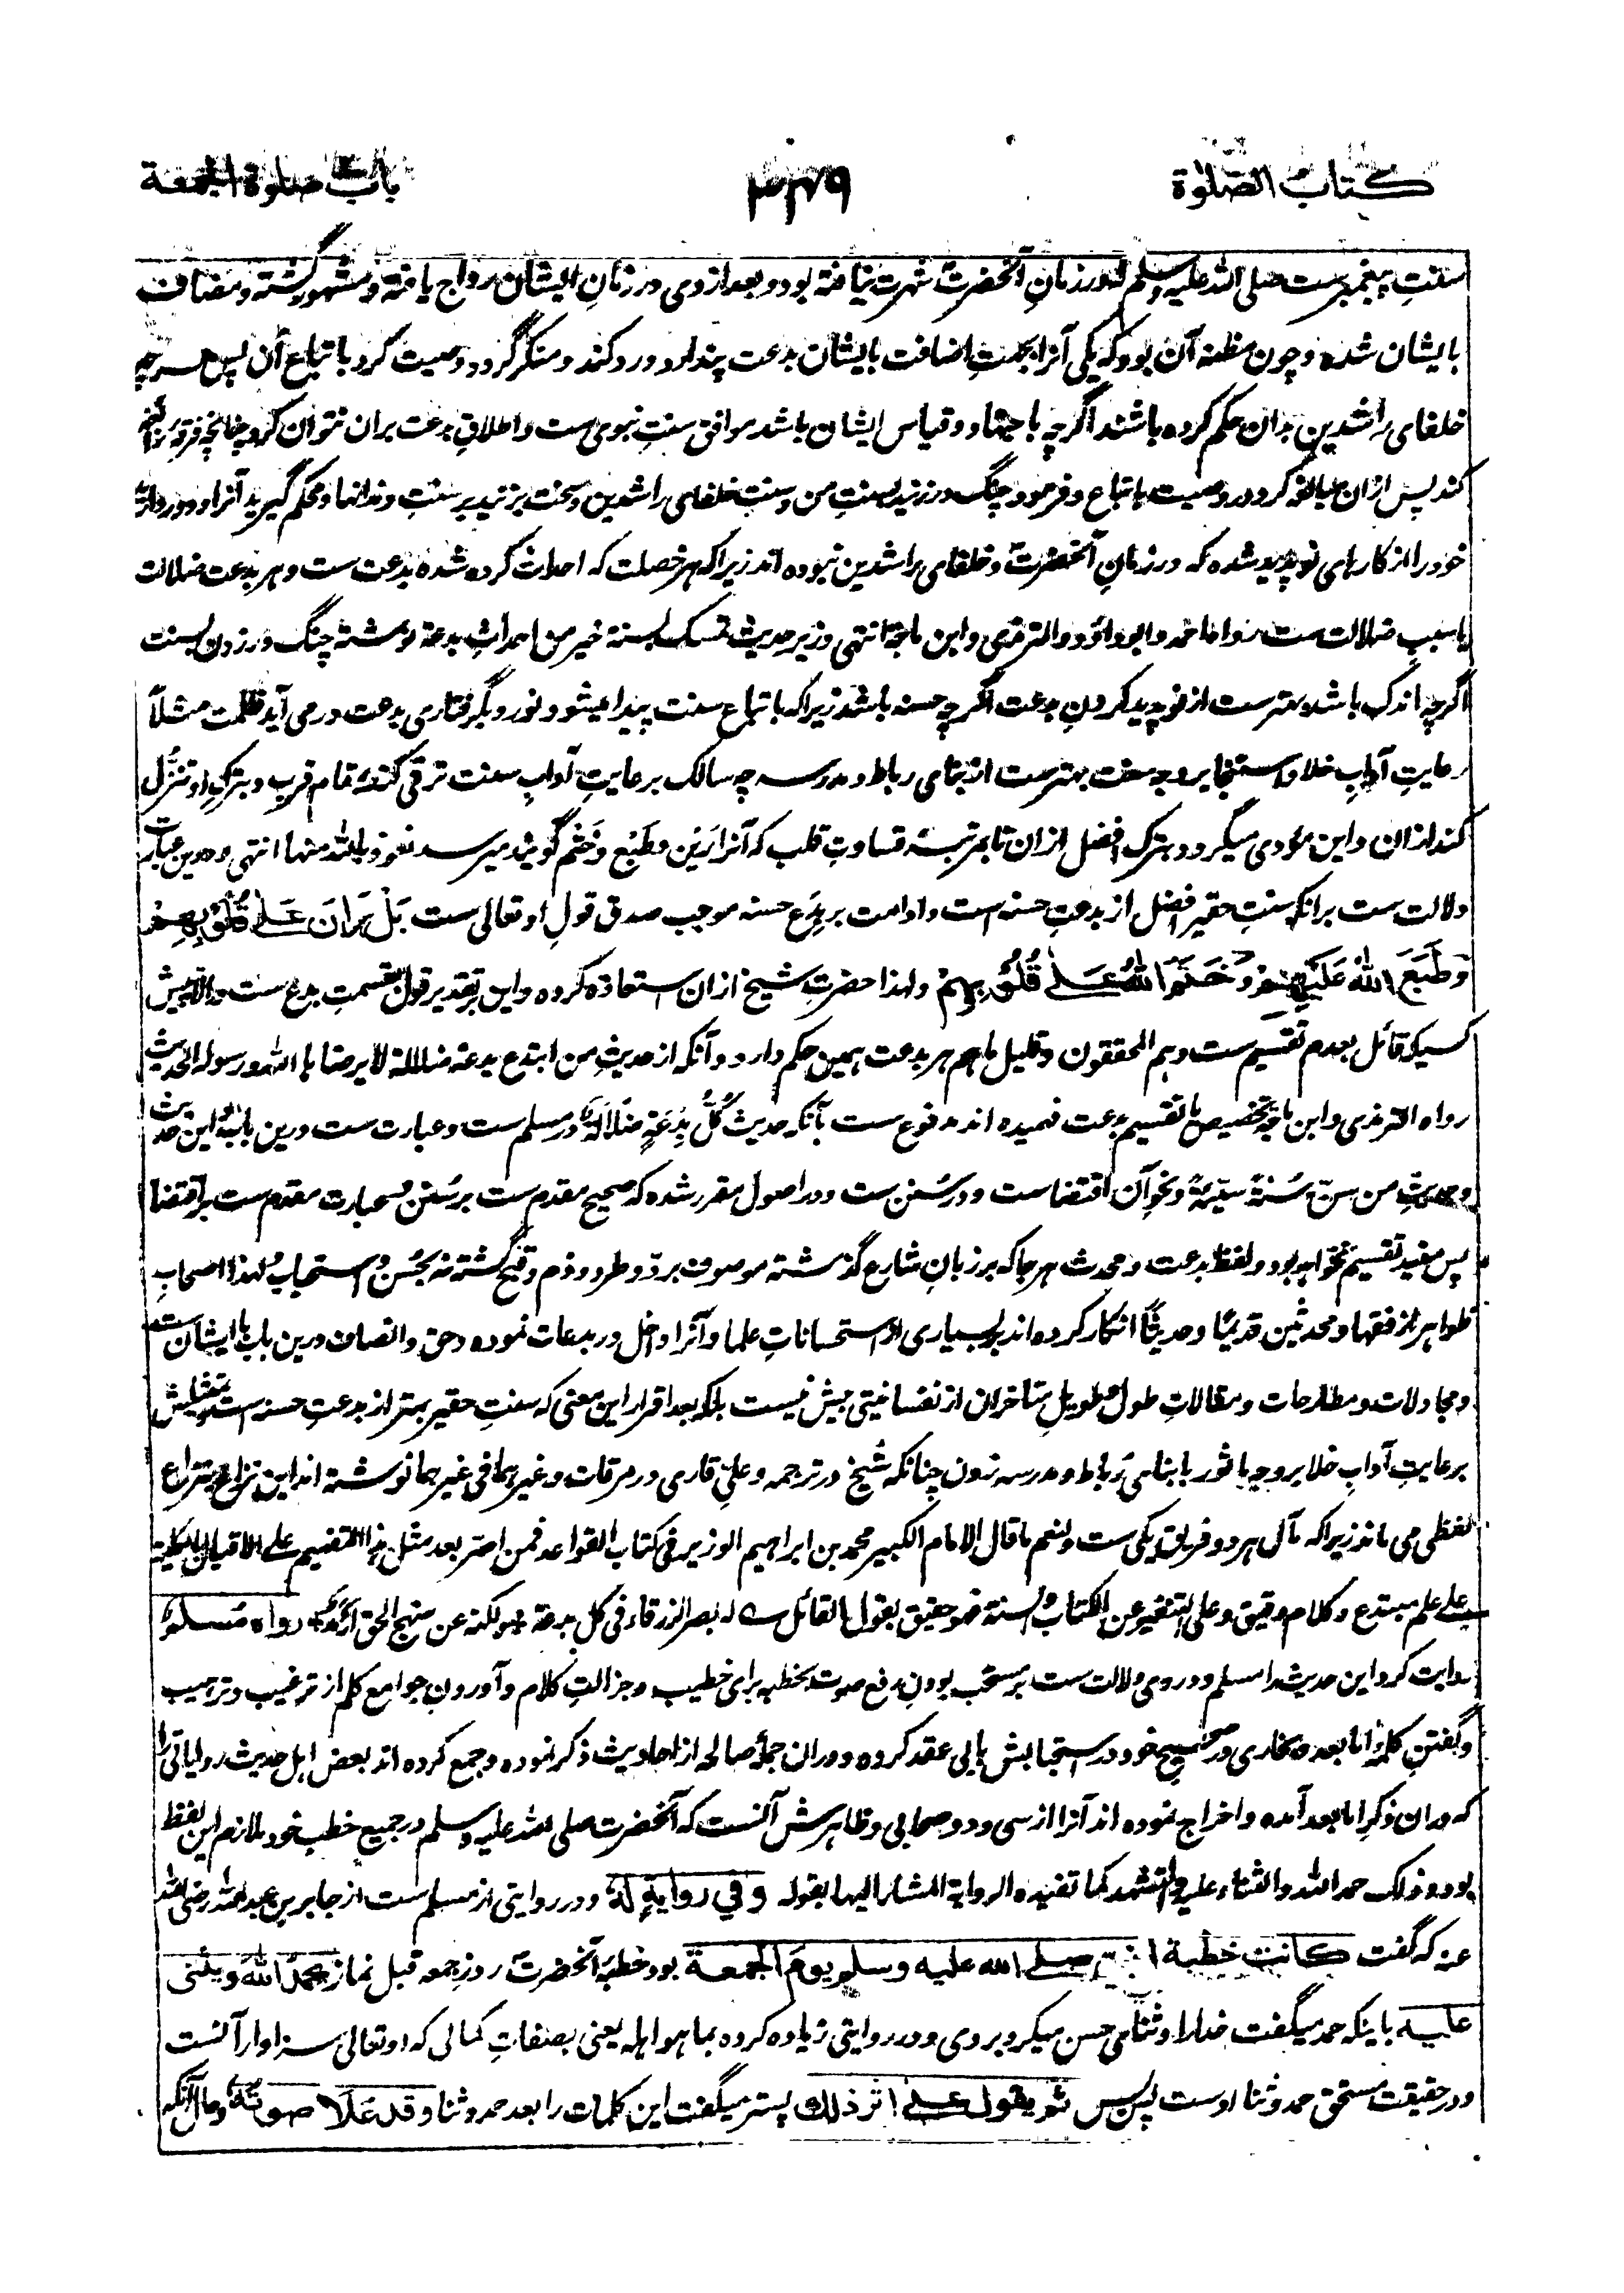 كتاب الصلوٰة ۴۴۹ باب صلوة الجمعة
سنتِ پیغمبرست صلی الله علیه وسلم که در زمانِ آنحضرت شهرت نیافته بود و بعد از وی در زمانِ ایشان رواج یافته و مشهور گشته و مضاف
بایشان شده و چون مظنه آن بود که یکی آنرا بجهتِ اضافت بایشان بدعت پندارد و رد کند و منکر گردد وصیت کرد باتباع آن پس هرچه
خلفای راشدین بدان حکم کرده باشند اگرچه باجتهاد و قیاس ایشان باشد موافق سنتِ نبوی ست و اطلاقِ بدعت بران نتوان کرد چنانچه فرقه زائغه
کند پس ازان مبالغه کرد در وصیت باتباع و فرمود چنگ ورزنید بسنتِ من و سنتِ خلفای راشدین و سخت بزنید برسنت دندانها و محکم گیرید آنرا و دور دارید
خود را از کارهای نو پدید شده که در زمانِ آنحضرت و خلفای راشدین نبوده اند زیراکه هر خصلت که احداث کرده شده بدعت ست و هر بدعت ضلالت
یا سببِ ضلالت ست رواه احمد و ابوداؤد والترمذی وابن ماجة انتهی وزیر حدیث تمسک بسنة خیر من احداثِ بدعة نوشته چنگ ورزدن بسنت
اگرچه اندک باشد بهترست از نو پدید کردنِ بدعت اگرچه حسنه باشد زیراکه باتباع سنت پیدا میشود نور و بگرفتاری بدعت درمی آید ظلمت مثلاً
رعایتِ آدابِ خلا و استنجا بروجه سنت بهترست از بنای رباط و مدرسه چه سالک برعایتِ آدابِ سنت ترقی کند بمقام قرب و بترکِ او تنزُّل
کند ازان و این مؤدی میگردد بترک افضل ازان تا بمرتبهٔ قساوتِ قلب که آنرا رَین و طَبْع و خَتْم گویند میرسد نعوذ بالله منها انتهی و درین عبارت
دلالت ست برانکه سنتِ حقیر افضل از بدعتِ حسنه است و ادامت بر بِدَعِ حسنه موجب صدق قولِ او تعالی ست بَلْ رَانَ عَلٰے قُلُوْبِهِمْ
وَطَبَعَ اللهُ عَلَيْهِمْ وَخَتَمَ اللهُ عَلٰے قُلُوْبِهِمْ ولهذا حضرتِ شیخ ازان استعاذه کرده و این بتقدیر قول بقسمتِ بدع ست والا پیش
کسیکه قائل بعدم تقسیم ست و هم المحققون و قلیل ما هم هر بدعت همین حکم دارد و آنکه از حدیثِ من ابتدع بدعة ضلالة لا یرضاها الله و رسوله الحدیث
رواه الترمذی وابن ماجة تخصیص یا تقسیم بدعت فهمیده اند مدفوع ست بآنکه حدیث كُلُّ بِدْعَةٍ ضَلَالَةٌ در مسلم ست و عبارت ست درین باب و این حدیث
و حدیثِ من سنّ سُنةً سیّئةً و نحوِ آن اقتضاست و در سُنن ست و در اصول مقرر شده که صحیح مقدم ست بر سُنن و عبارت مقدم ست بر اقتضا
پس مفید تقسیم نخواهد بود و لفظ بدعت و محدث هرجا که بر زبانِ شارع گذشته موصوف بردّ و طرد و ذم و قبح گشته نه بحُسن و استحباب و لهذا اصحابِ
ظواهر از فقها و محدثین قدیمًا و حدیثًا انکار کرده اند بر بسیاری از استحساناتِ علما و آنرا داخل در بدعات نموده و حق و انصاف درین باب با ایشان ست
و مجادلات و مطارحات و مقالاتِ طول طویلِ متأخران از نفسانیتی بیش نیست بلکه بعد اقرار این معنی که سنتِ حقیر بهتر از بدعتِ حسنه است و تمثیلش
برعایتِ آدابِ خلا بروجه ماثور با بنای رباط و مدرسه زدن چنانکه شیخ در ترجمه و علی قاری در مرقات و غیرهما فی غیرهما نوشته اند این نزاع بنزاعِ
لفظی می ماند زیراکه مآل هر دو فریق یکی ست ولنعم ما قال الامام الکبیر محمد بن ابراهیم الوزیر فی کتاب القواعد فمن اصر بعد مثل هذا التفهیم علی الاقبال بالکلیة
علی علم مبتدع و کلام دقیق و علی التنفیر عن الکتاب والسنة فهو حقیق بقول القائل ؎ له بصر الزرقاء فی کل بدعة ٭ ولکنه عن منهج الحق اکمه ٭ رواه مُسلم
روایت کرد این حدیث را مسلم و در وی دلالت ست بر مستحب بودنِ رفع صوت بخطبه برای خطیب و جزالتِ کلام و آوردنِ جوامع کلم از ترغیب و ترهیب
و گفتنِ کلمهٔ اما بعد و بخاری در صحیح خود در استحبابش بابی عقد کرده و دران جملهٔ صالحه از احادیث ذکر نموده و جمع کرده اند بعض اهل حدیث روایاتی را
که دران ذکرِ اما بعد آمده و اخراج نموده اند آنرا از سی و دو صحابی و ظاهرش آنست که آنحضرت صلی الله علیه وسلم در جمیع خطب خود ملازم این لفظ
بود و ذلک حمد الله والثناء علیه والتشهد کما تفیده الروایة المشار الیها بقوله وفي روايةٍ لهٗ و در روایتی از مسلم ست از جابر بن عبدالله رضی الله
عنه که گفت كانت خطبة النبي صلے الله عليه وسلم يومَ الجمعة بود خطبهٔ آنحضرت روز جمعه قبل نماز يحمدُ اللهَ ويثني
عليه باینکه حمد میگفت خدا را و ثنای حسن میکرد بر وی و در روایتی زیاده کرده بما هو اهله یعنی بصفاتِ کمالی که او تعالی سزاوار آنست
و در حقیقت مستحق حمد و ثنا اوست پس ثم يقول علے اثر ذلك پستر میگفت این کلمات را بعد حمد و ثنا وقد عَلَا صوتُهٗ و حال آنکه